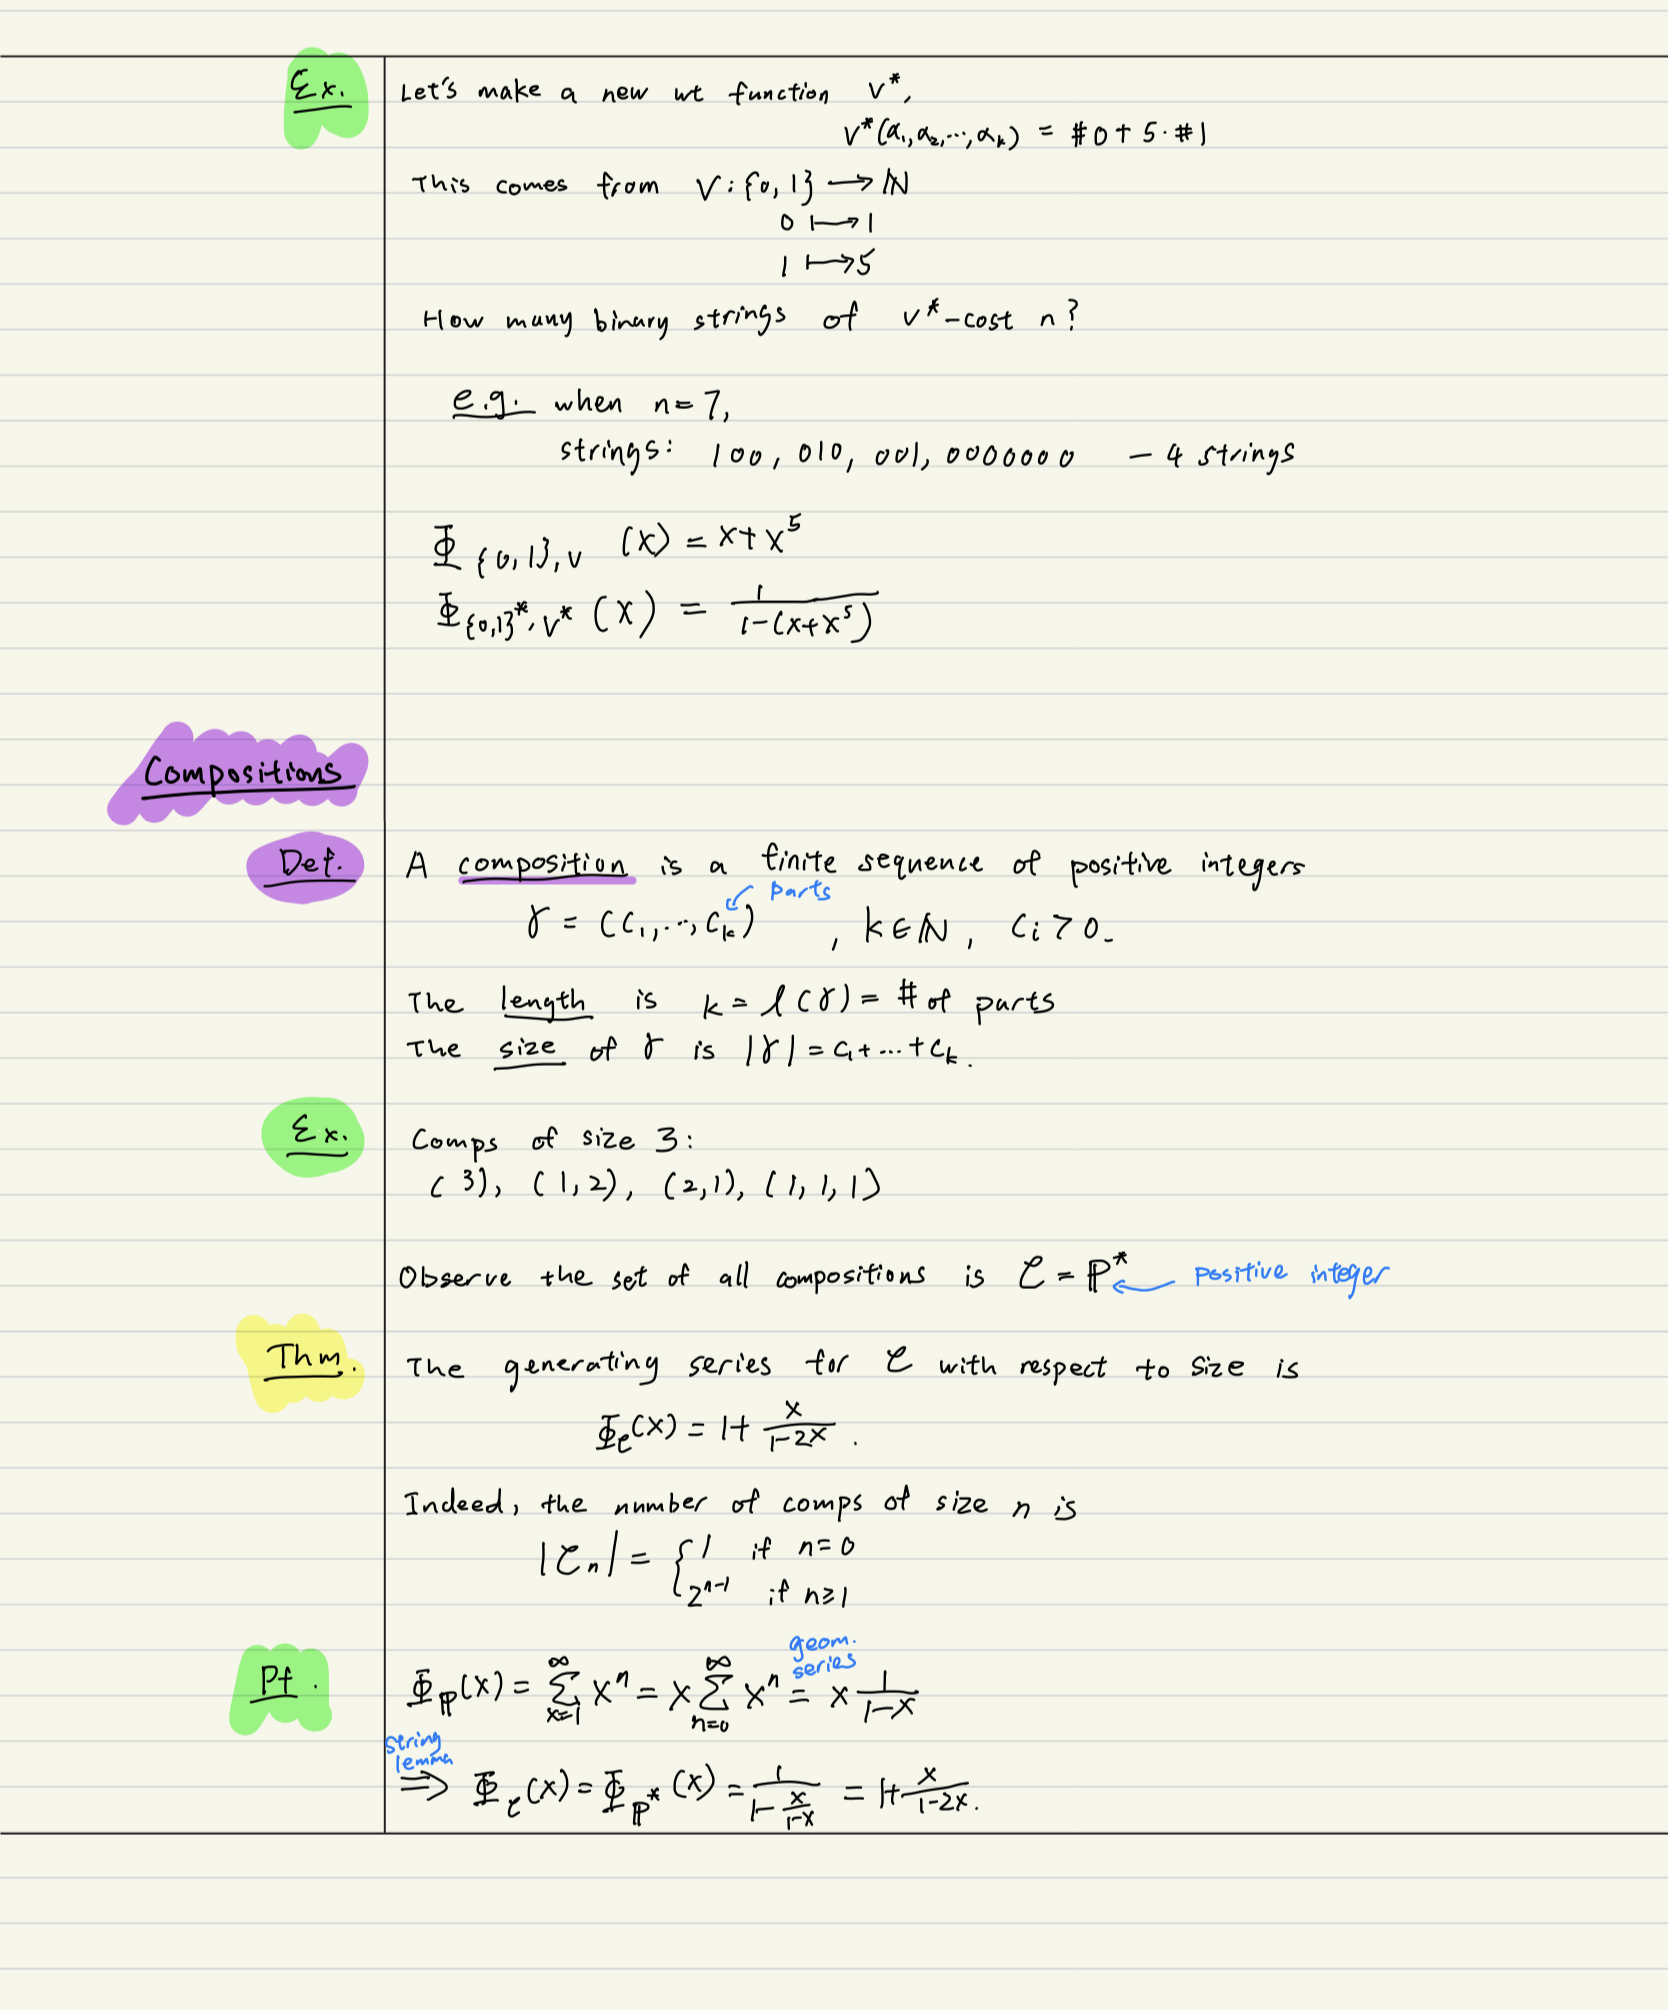 Ex. Let's make a new wt function v*,
v*(α₁,α₂,…,αₖ) = #0 + 5·#1
This comes from v:{0,1} → ℕ
0 ↦ 1
1 ↦ 5
How many binary strings of v*-cost n?
e.g. when n=7,
strings: 100, 010, 001, 0000000 – 4 strings
Φ_{{0,1},v} (x) = x+x⁵
Φ_{{0,1}*,v*} (x) = 1/(1-(x+x⁵))
Compositions
Def. A composition is a finite sequence of positive integers
parts
γ = (c₁,…,cₖ), k∈ℕ, cᵢ>0.
The length is k = l(γ) = # of parts
The size of γ is |γ| = c₁+…+cₖ.
Ex. Comps of size 3:
(3), (1,2), (2,1), (1,1,1)
Observe the set of all compositions is 𝒞 = ℙ* ← positive integer
Thm. The generating series for 𝒞 with respect to size is
Φ_𝒞(x) = 1+ x/(1-2x).
Indeed, the number of comps of size n is
|𝒞ₙ| = { 1 if n=0
2ⁿ⁻¹ if n≥1
geom.
series
Pf. Φ_ℙ(x) = ∑_{x=1}^∞ xⁿ = x∑_{n=0}^∞ xⁿ = x 1/(1-x)
string
lemma
⇒ Φ_𝒞(x) = Φ_{ℙ*}(x) = 1/(1-x/(1-x)) = 1+ x/(1-2x).